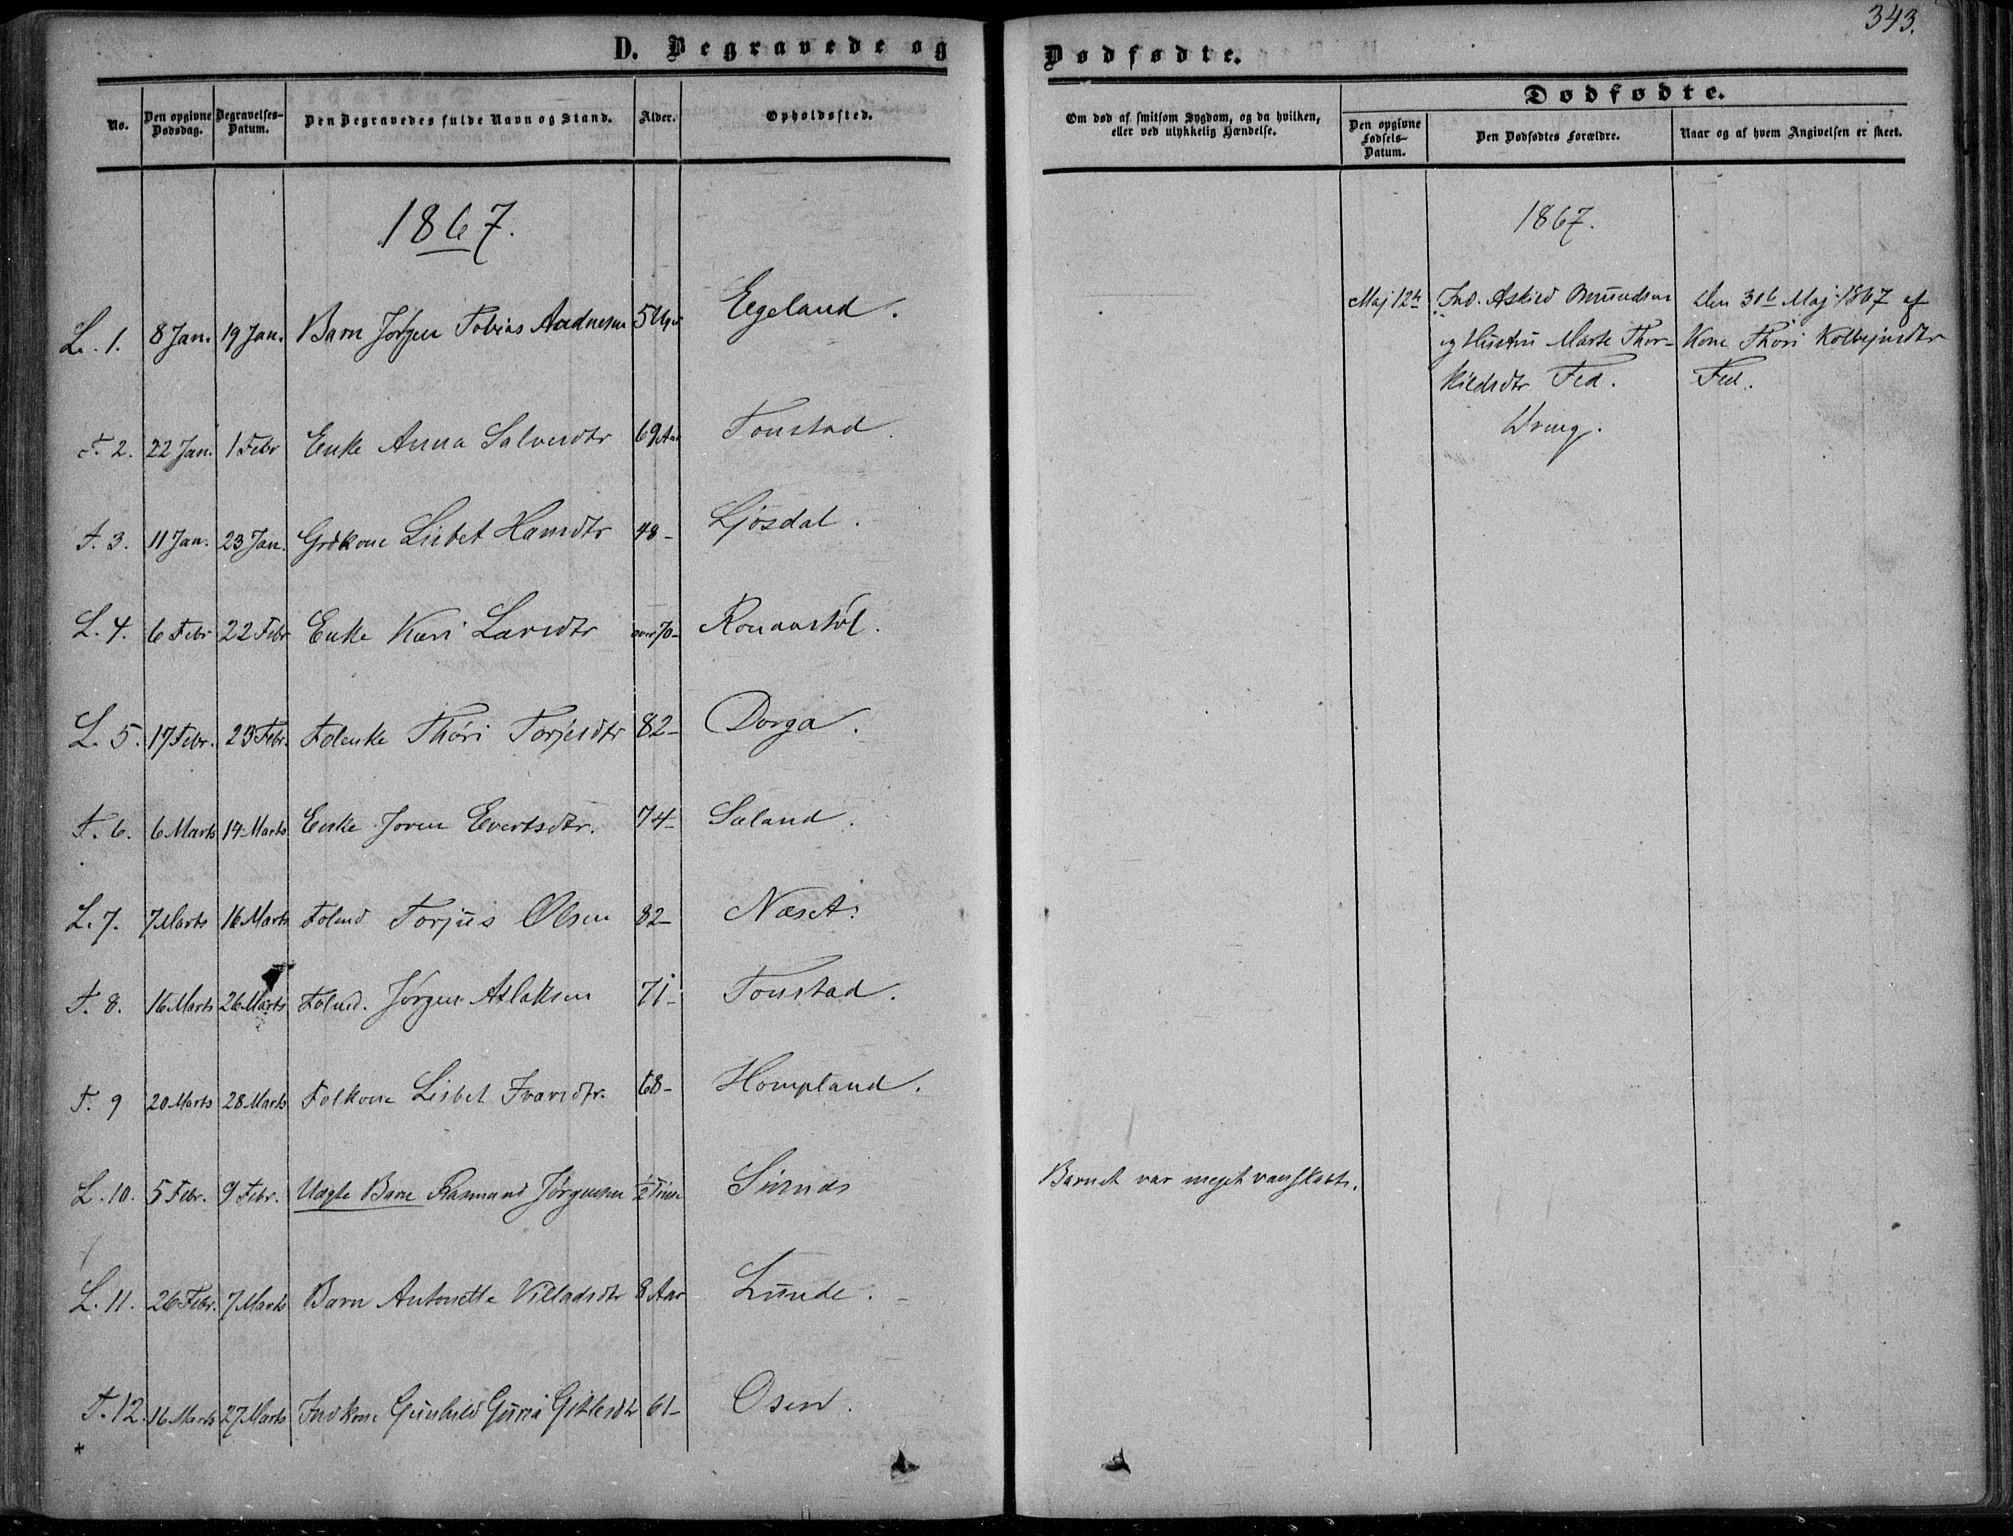 343.
D. Begravede og Dødfødte.
No. Den opgivne Dødsdag. Begravelses-Datum. Den Begravedes fulde Navn og Stand. Alder. Opholdssted.
Om død af smitsom Sygdom, og da hvilken, eller ved ulykkelig Hændelse.
Dødfødte.
Den opgivne Fødsels-Datum. Den Dødfødtes Forældre. Naar og af hvem Angivelsen er skeet.
1867.
L. 1. 8 Jan. 19 Jan. Barn Jørgen Tobias Aadnesen 5 Uger Egeland.
F. 2. 22 Jan. 1 Febr Enke Anna Salvesdtr 69 Aar Tonstad.
F. 3. 11 Jan. 23 Jan. Grdkone Lisbet Hansdtr 48- Ljosdal.
L. 4. 6 Febr 22 Febr Enke Kari Larsdtr over 70-
L. 5. 17 Febr. 23 Febr. Folenke Thöri Torjesdtr 82- Dorga.
F. 6. 6 Marts 14 Marts Enke Joren Evertsdtr. 74- Saland.
L. 7. 7 Marts 16 Marts Folmd Torjus Olsen 82- Næset.
F. 8. 16 Marts 26 Marts Folmd. Jørgen Aslaksen 71- Tonstad.
F. 9 20 Marts 28 Marts Folkone Lisbet Ivarsdtr. 68- Hompland.
L. 10. 5 Febr. 9 Febr. Uægte Barn Rasmund Jørgensen ½ Time Sirnæs Barnet var meget vanskabt.
L. 11. 26 Febr. 7 Marts Barn Antonette Villadsdtr 8 Aar Lunde.
F. 12. 16 Marts 27 Marts Indkone Gunhild Guria Gitlesdtr 61- Osen.
1867.
Maj 12te Ind. Askild Omundsen Den 30te Maj 1867 af
og Hustru Marte Thor- Kone Thöri Kolbejnsdtr
kildsdtr Fed. Fed.
Dreng.